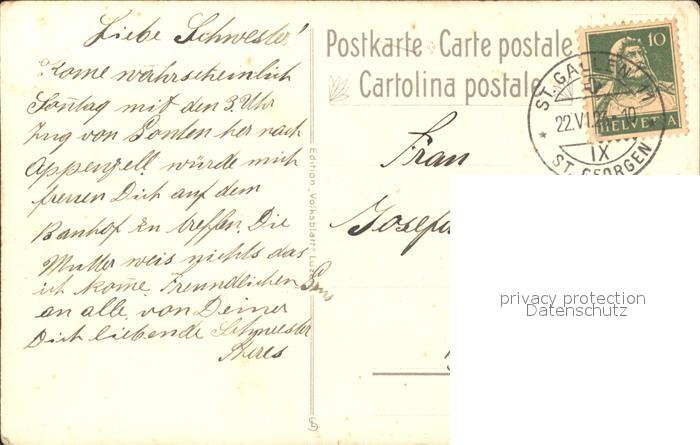 Liebe Schwester!
Kome wahrscheinlich
Sontag mit den 3. Uhr
Zug von Gonten her nach
Appenzell würde mich
freuen Dich auf dem
Banhof zu treffen. Die
Mutter weis nichts das
ich kome. Freundlichen Grus
an alle von Deiner
Dich liebende Schwester
Theres
Edition „Volksblatt"
Postkarte Carte postale
Cartolina postale
10
HELVETIA
ST. GALLEN
22.VI.
IX
ST. GEORGEN
Frau
privacy protection
Datenschutz